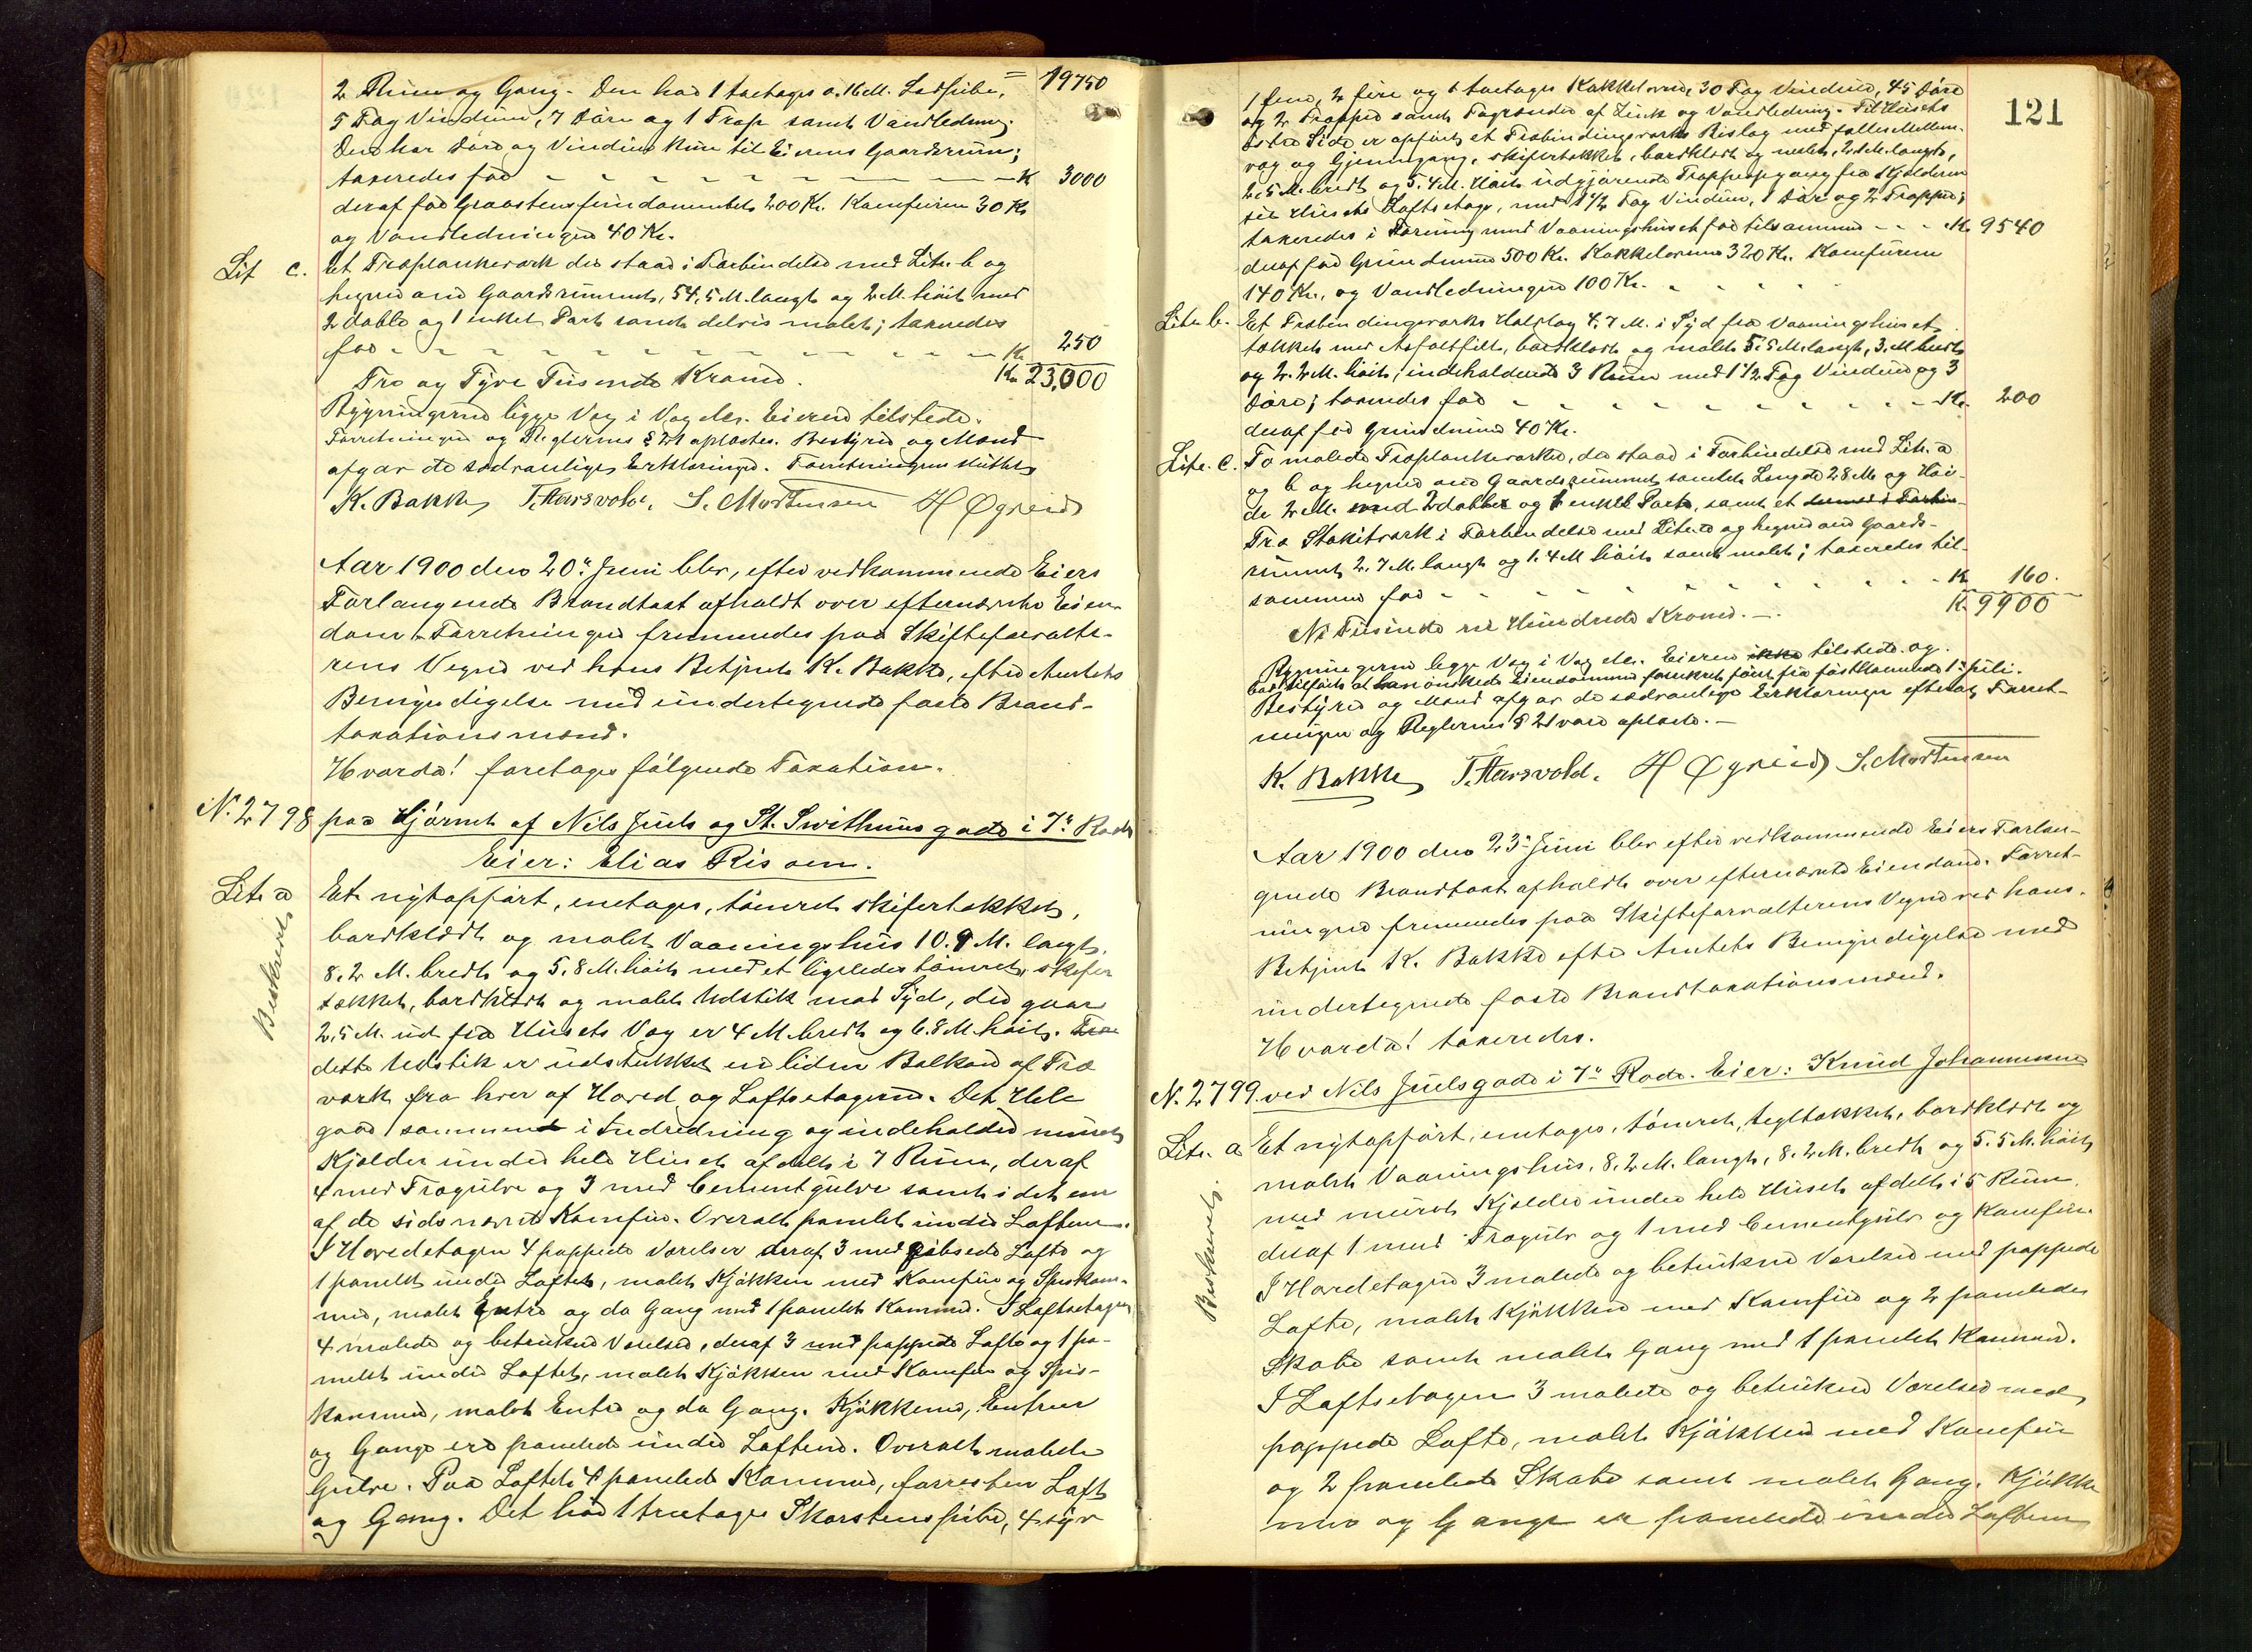 2 Rum og Gang. Den har 1 toetages o. 16 M. Ladpibe, = 19750
5 Fag Vinduer, 7 Døre og 1 Trap samt Vandledning.
Den har Døre og Vinduer kun til Eierens Gaardsrum;
taxeredes for - - - - K 3000
deraf for Graastensfundamentet 200 Kr. Komfuren 30 Kr
og Vandledningen 40 Kr.
Lit c. Et Træplankeværk der staar i Forbindelse med Litr. b og
hegner om Gaardsrummet, 54,5 M. langt og 2 M. høit med
2 doble og 1 enkel Port samt delvis malet; taxeredes
for - - - - Kr. 250
Tre og Tyve Tusende Kroner. Kr. 23,000
Bygningerne ligge Væg i Væg etc. Eieren tilstede.
Forretningen og Reglernes § 21 oplæstes. Bestyrer og Mænd
afgav de sædvanlige Erklæringer. Forretningen sluttet
K. Bakke T. Harsvold. S. Mortensen H Øgreid
Aar 1900 den 20de Juni blev, efter vedkommende Eiers
Forlangende Brandtaxt afholdt over efternævnte Eien-
dom. Forretningen fremmedes paa Skifteforvalte-
rens Vegne ved hans Betjent K. Bakke, efter Amtets
Bemyndigelse med undertegnede faste Brand-
taxationsmænd.
Hvorda! foretages følgende Taxation.
N. 2798 paa Hjørnet af Nils Juels og St. Swithuns gade i 7de Rode
Eier: Elias Risoen.
Lit. a Et nyt opført, enetages, tømret skifertækket,
Beskrevet
bordklædt og malet Vaaningshus 10.9 M. langt.
8.2 M. bredt og 5.8 M. høit med et ligeledes tømret, skifer
tækket, bordklædt og malet Udstik mod Syd, der gaar
2.5 M. ud fra Husets Væg er 4 M. bredt og 6.8 M. høit. Fra
dette Udstik er udstukket en liden Balkon af Træ
værk fra hver af Hoved og Loftsetagerne. Det Hele
gaar sammen i Indredning og indeholder muret
Kjælder under hele Huset afdelt i 7 Rum, deraf
4 med Trægulve og 3 med Cementgulve samt i det ene
af de sidsnævnte Komfur. Overalt panelet under Loftene.
I Hovedetagen 4 pappede Værelser deraf 3 med gibsede Lofte og
1 panelet under Loftet, malet Kjøkken med Komfur og Spiskam-
mer, malet Entre og do Gang med 1 panelet Kammer. I Loftsetagen
4 malede og betrukne Værelser, deraf 3 med pappede Lofte og 1 pa-
nelet under Loftet, malet Kjøkken med Komfur og Spis-
kammer, malet Entre og do Gang. Kjøkkenerne, Entreer
og Gange ere panelede under Loftene. Overalt malede
Gulve. Paa Loftet 4 panelede Kammer, forresten Loft
og Gang. Det har 1 treetages Skorstenspibe, 4 syv
121
1 fem, 2 fire og 1 toetages Kakkelovne, 30 Fag Vinduer, 45 Døre
og 2 Trapper samt Tagrender af Zink og Vandledning. Til Husets
østre Side er opført et Træbindingsværks Bislag med fælles Mellem-
væg og Gjennemgang, skifertækket, bordklædt og malet, 2.4 M. langt,
2.5 M. bredt og 5.4 M. høit udgjørende Trappeopgang fra Kjælderen
til Husets Loftsetage, med 1 1/2 Fag Vinduer, 1 Dør og 2 Trapper;
taxeredes i Forening med Vaaningshuset for tilsammen - - - Kr. 9540
deraf for Grundmuren 500 Kr. Kakkelovnene 320 Kr. Komfurene
140 Kr. og Vandledningen 100 Kr.
Litr. b. Et Træbindingsværks Halvtag 4.7 M. i Syd fra Vaaningshuset,
tækket med Asfaltfilt, bordklædt og malet 5.5 M. langt, 3. M bredt
og 2.2 M. høit, indeholdende 3 Rum med 1 1/2 Fag Vinduer og 3
Døre; taxeredes for - - - - Kr. 200
deraf for Grundmuren 40 Kr.
Litr. C. To malede Træplankeværker, der staar i Forbindelse med Litr. a
og b og hegner om Gaardsrummet samlet Længde 28 M. og Høi-
de 2 M. med 2 doble og 1 enkel Port, samt et
Træ Stakitværk i Forbindelse med Litr. a og hegner om Gaards-
rummet 2.7 M. langt og 1.4 M høit samt malet; taxeredes til-
sammen for - - - - Kr 160.
Ni Tusinde ni Hundrede Kroner. - K. 9900
Bygningerne ligge Væg i Væg etc. Eieren ikke tilstede og
har tilført at han ønskede Eiendommen forsikret først fra førstkommende 1ste Juli.
Bestyrer og Mænd afgav de sædvanlige Erklæringer efterat Forret-
ningen og Reglernes § 21 vare oplæste. -
K. Bakke T. Harsvold. H Øgreid S. Mortensen
Aar 1900 den 23de Juni blev efter vedkommende Eiers Forlan-
gende Brandtaxt afholdt over efternævnte Eiendom. Forret-
ningen fremmedes paa Skifteforvalterens Vegne ved hans
Betjent K. Bakke efter Amtets Bemyndigelse med
undertegnede faste Brandtaxationsmænd.
Hvorda! taxeredes.
N. 2799. ved Nils Juelsgade i 7de Rode. Eier: Knud Johannesen
Litr. a Et nytopført, enetages, tømret, tegltækket, bordklædt og
Beskrevet.
malet Vaaningshus, 8.2 M. langt, 8.2 M. bredt og 5.5 M. høit
med muret Kjælder under hele Huset afdelt i 5 Rum,
deraf 1 med Trægulv og 1 med Cementgulv og Komfur.
I Hovedetagen 3 malede og betrukne Værelser med pappede
Lofte, malet Kjøkken med Komfur og 2 panelede
Skabe samt malet Gang med 1 panelet Kammer.
I Loftsetagen 3 malede og betrukne Værelser med
pappede Lofte, malet Kjøkken med Komfur
og 2 panelede Skabe samt malet Gang. Kjøkke
nerne og Gange er panelede under Loftene